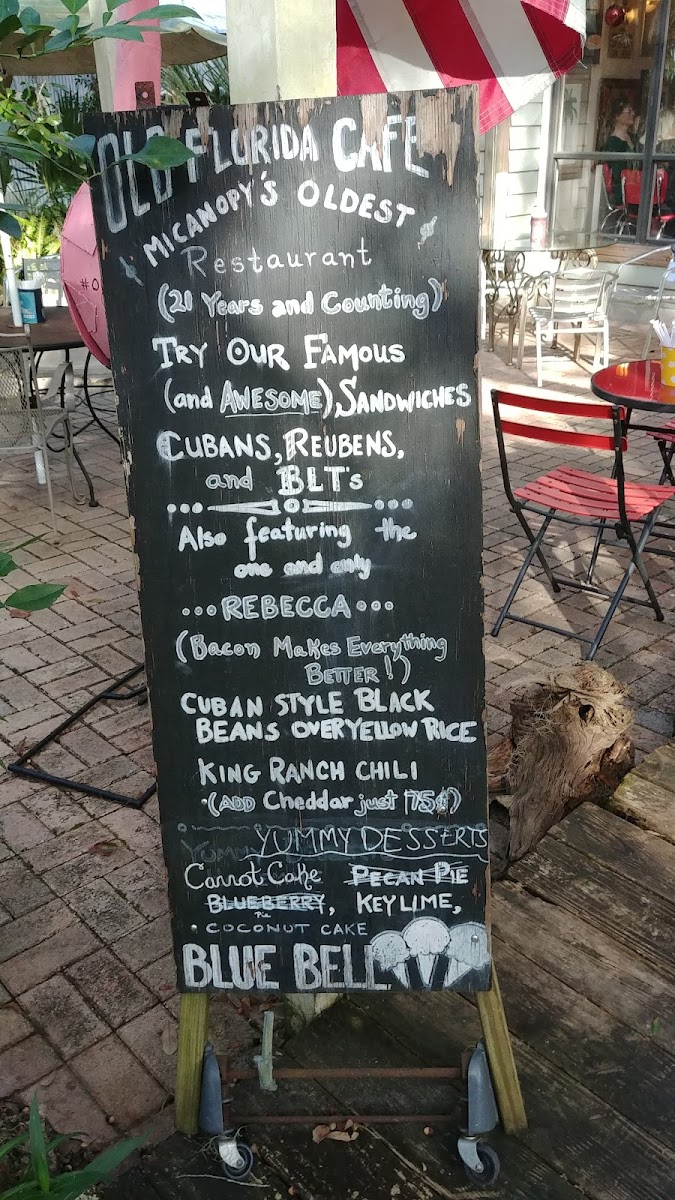 OLD FLORIDA CAFE
MICANOPY'S OLDEST
Restaurant
(21 Years and Counting)
TRY OUR FAMOUS
(and AWESOME) SANDWICHES
CUBANS, REUBENS,
and BLT's
Also featuring the
one and only
...REBECCA...
(Bacon Makes Everything
BETTER!)
CUBAN STYLE BLACK
BEANS OVER YELLOW RICE
KING RANCH CHILI
(ADD Cheddar just 75¢)
YUMMY YUMMY DESSERTS
Carrot Cake PECAN PIE
BLUEBERRY, KEY LIME,
Pie
• COCONUT CAKE
BLUE BELL
#0